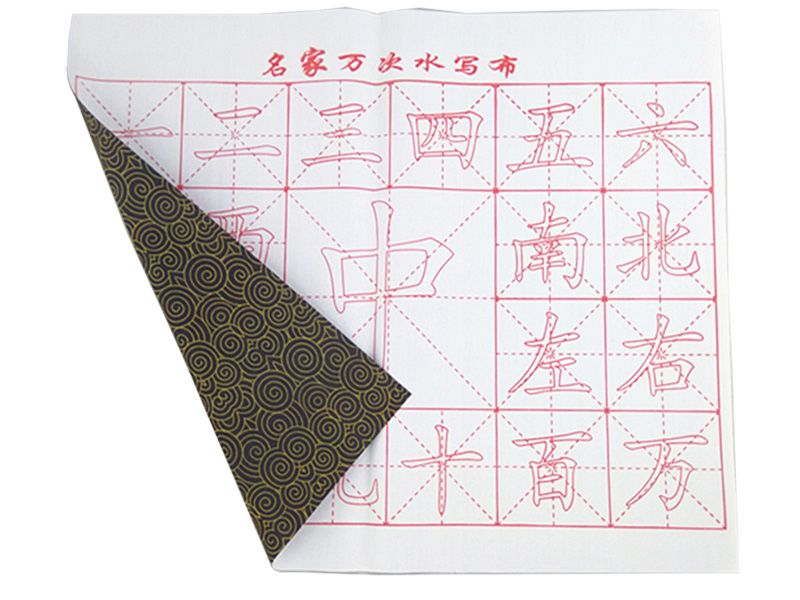 名家万次水写布
一 二 三 四 五 六
西 中 南 北
左 右
十 百 万